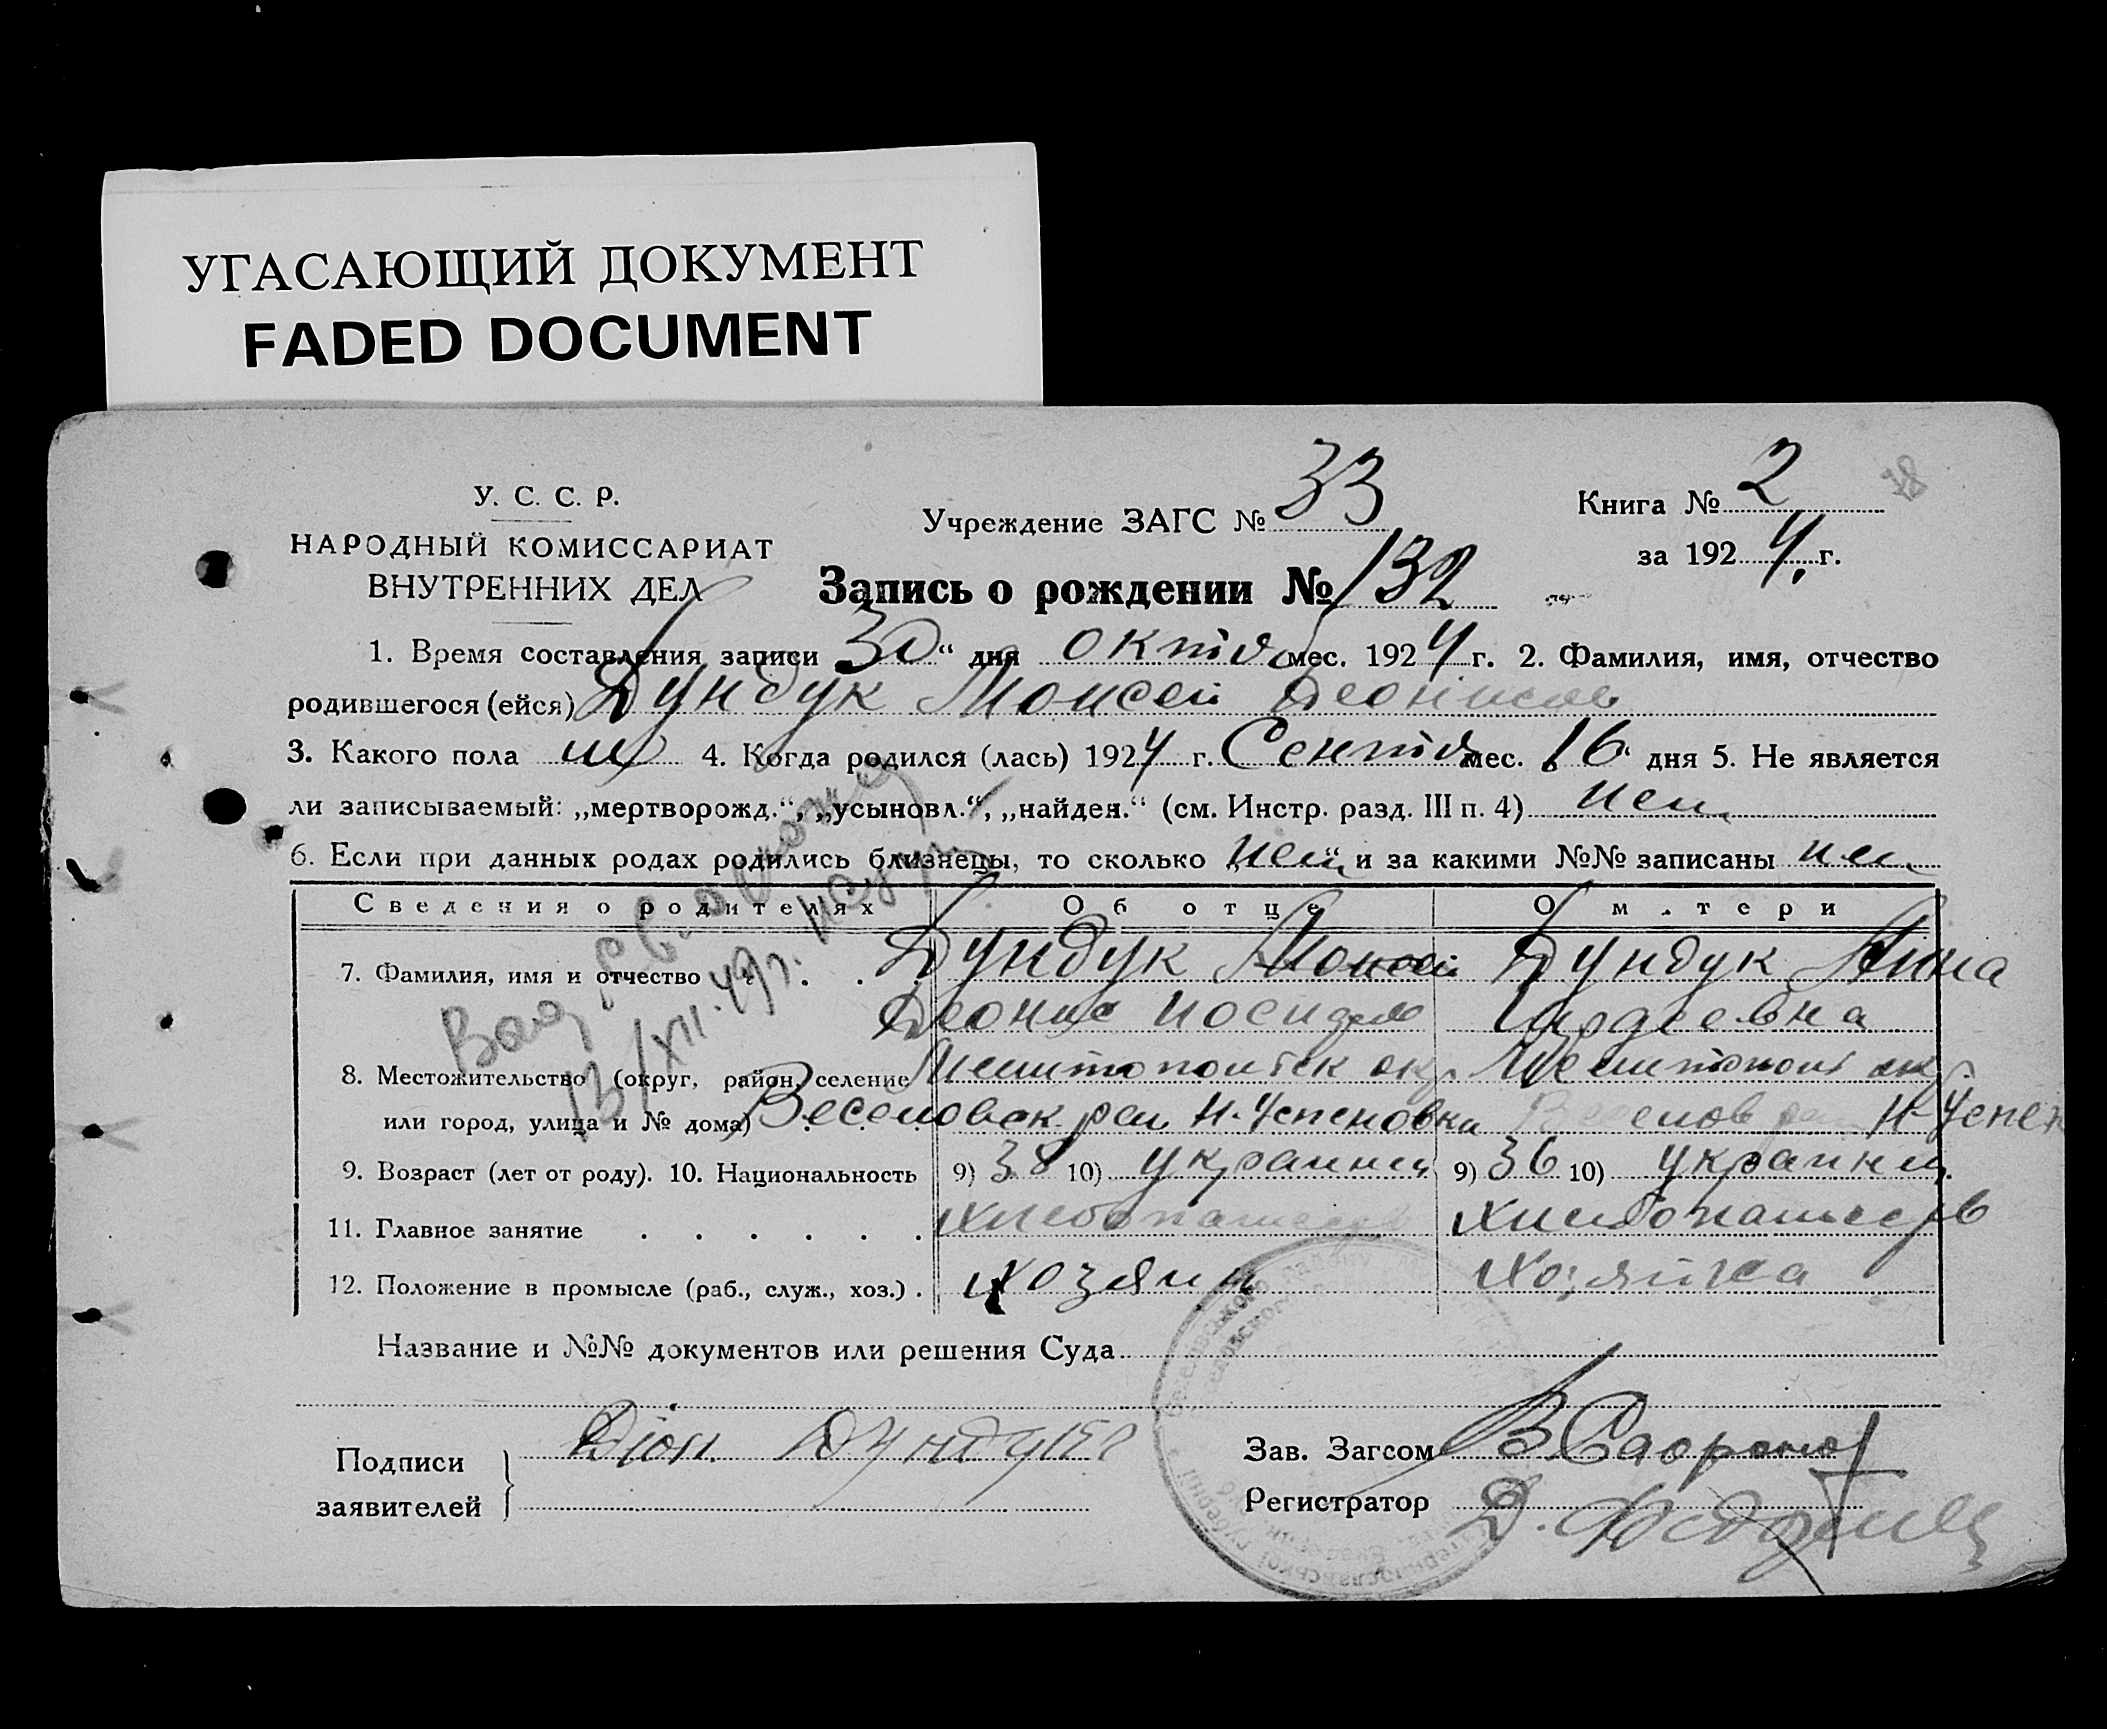 УГАСАЮЩИЙ ДОКУМЕНТ
FADED DOCUMENT
У. С. С. Р.
НАРОДНЫЙ КОМИССАРИАТ
ВНУТРЕННИХ ДЕЛ
Учреждение ЗАГС № 33
Книга № 2
за 1924 г.
Запись о рождении № 132
1. Время составления записи 30 “ дня октя мес. 1924 г. 2. Фамилия, имя, отчество
родившегося (ейся) Дундук Моисей Деонисов
3. Какого пола м 4. Когда родился (лась) 1924 г. Сентя мес. 16 дня 5. Не является
ли записываемый: „мертворожд.“, „усыновл.“, „найден.“ (см. Инстр. разд. III п. 4) нет
6. Если при данных родах родились близнецы, то сколько нет “ и за какими №№ записаны нет
Сведения о родителях Об отце О матери
7. Фамилия, имя и отчество Дундук Моисей Дундук Анна
Деонис Гордеевна
8. Местожительство (округ, район, селение Мелитопольск окр. Мелитополь окр.
или город, улица и № дома) Веселовск рай Н-Успеновка Веселов рай Н-Успен
9. Возраст (лет от роду). 10. Национальность 9) 38 10) украинец 9) 36 10) украинец
11. Главное занятие хлебопашество хлебопашеств
12. Положение в промысле (раб., служ., хоз.) хозяин хозяйка
Название и №№ документов или решения Суда
Подписи
заявителей
Діон. Дундук
Зав. Загсом
Регистратор
13/XII.49г.